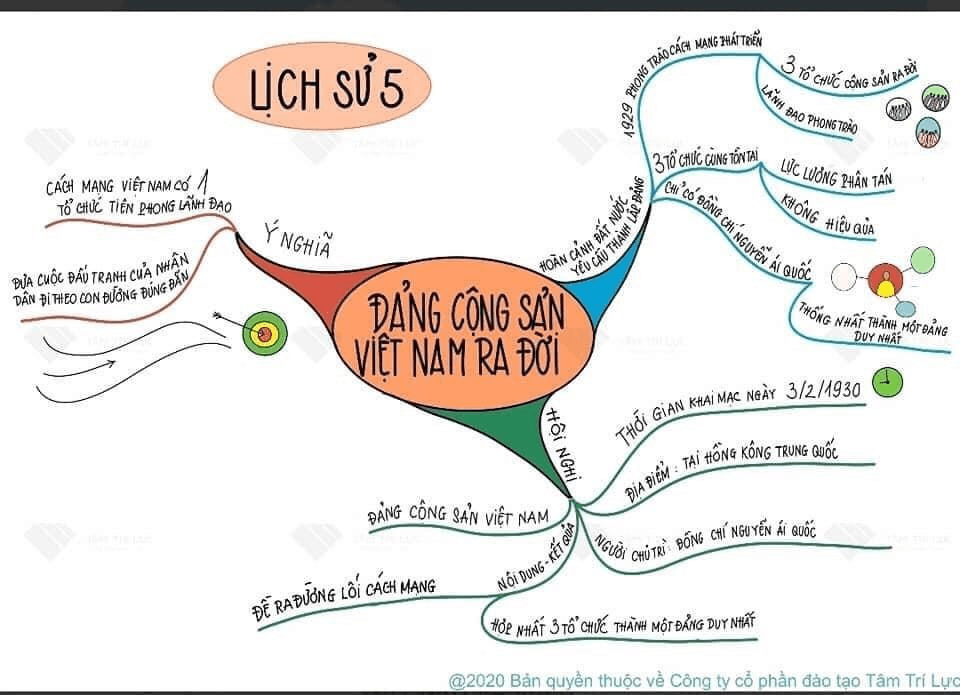 LỊCH SỬ 5
ĐẢNG CỘNG SẢN
VIỆT NAM RA ĐỜI
HOÀN CẢNH ĐẤT NƯỚC
YÊU CẦU THÀNH LẬP ĐẢNG
1929 PHONG TRÀO CÁCH MẠNG PHÁT TRIỂN
3 TỔ CHỨC CỘNG SẢN RA ĐỜI
LÃNH ĐẠO PHONG TRÀO
3 TỔ CHỨC CÙNG TỒN TẠI
LỰC LƯỢNG PHÂN TÁN
KHÔNG HIỆU QUẢ
CHỈ CÓ ĐỒNG CHÍ NGUYỄN ÁI QUỐC
THỐNG NHẤT THÀNH MỘT ĐẢNG
DUY NHẤT
HỘI NGHỊ
THỜI GIAN KHAI MẠC NGÀY 3/2/1930
ĐỊA ĐIỂM : TẠI HỒNG KÔNG TRUNG QUỐC
NGƯỜI CHỦ TRÌ : ĐỒNG CHÍ NGUYỄN ÁI QUỐC
NỘI DUNG - KẾT QUẢ
HỢP NHẤT 3 TỔ CHỨC THÀNH MỘT ĐẢNG DUY NHẤT
ĐỀ RA ĐƯỜNG LỐI CÁCH MẠNG
ĐẢNG CỘNG SẢN VIỆT NAM
Ý NGHĨA
CÁCH MẠNG VIỆT NAM CÓ 1
TỔ CHỨC TIÊN PHONG LÃNH ĐẠO
ĐƯA CUỘC ĐẤU TRANH CỦA NHÂN
DÂN ĐI THEO CON ĐƯỜNG ĐÚNG ĐẮN
TÂM TRÍ LỰC
@2020 Bản quyền thuộc về Công ty cổ phần đào tạo Tâm Trí Lực